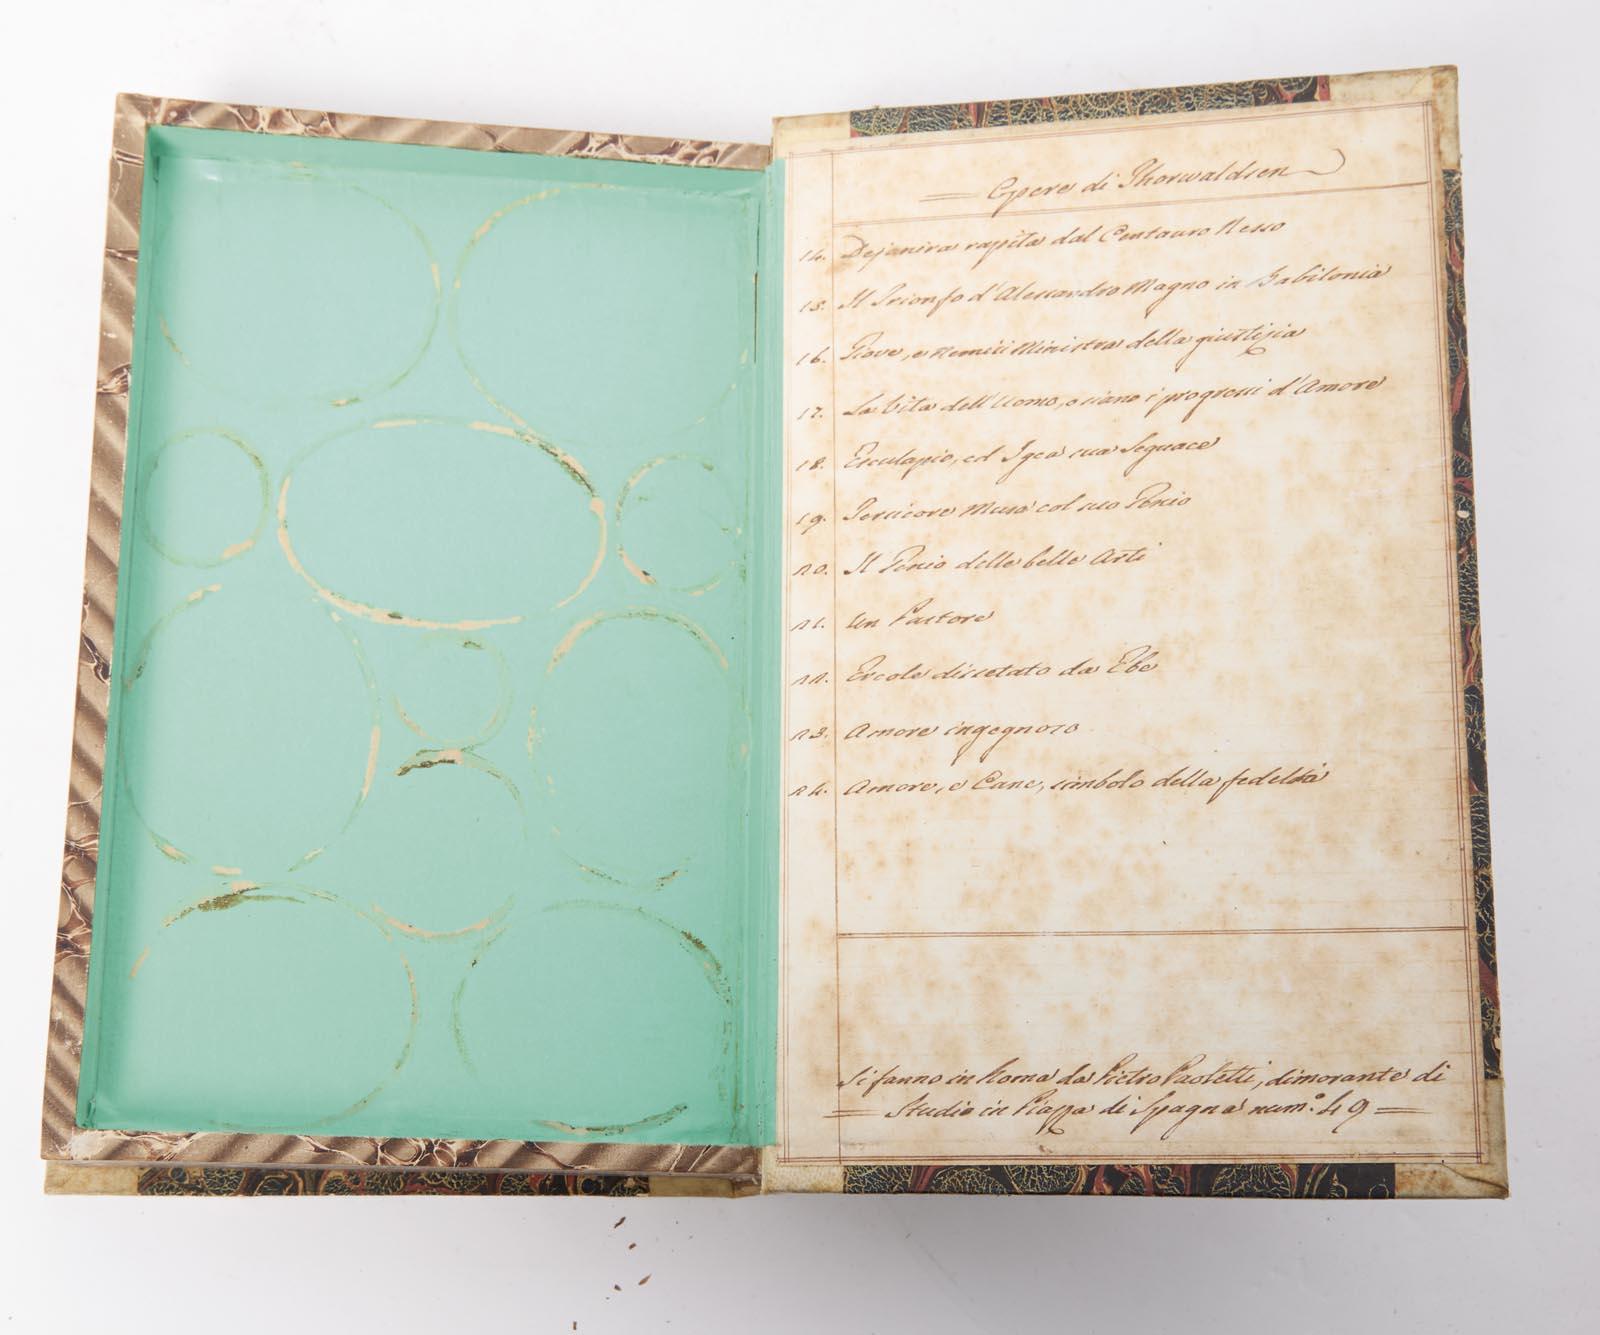 Opere di Thorwaldsen
14. Dejanira rapita dal Centauro Nesso
15. Il Trionfo d'Alessandro Magno in Babilonia
16. Giove, e Nemesi Ministra della giustizia
17. La Vita dell'Uomo, o siano i progressi d'Amore
18. Esculapio, ed Igea sua Seguace
19. Tersicore Musa col suo Genio
20. Il Genio delle belle Arti
21. Un Pastore
22. Ercole dissetato da Ebe
23. Amore ingegnoso
24. Amore, e Cane, simbolo della fedeltà
Si fanno in Roma da Pietro Paoletti, dimorante di
Studio in Piazza di Spagna num.o 49